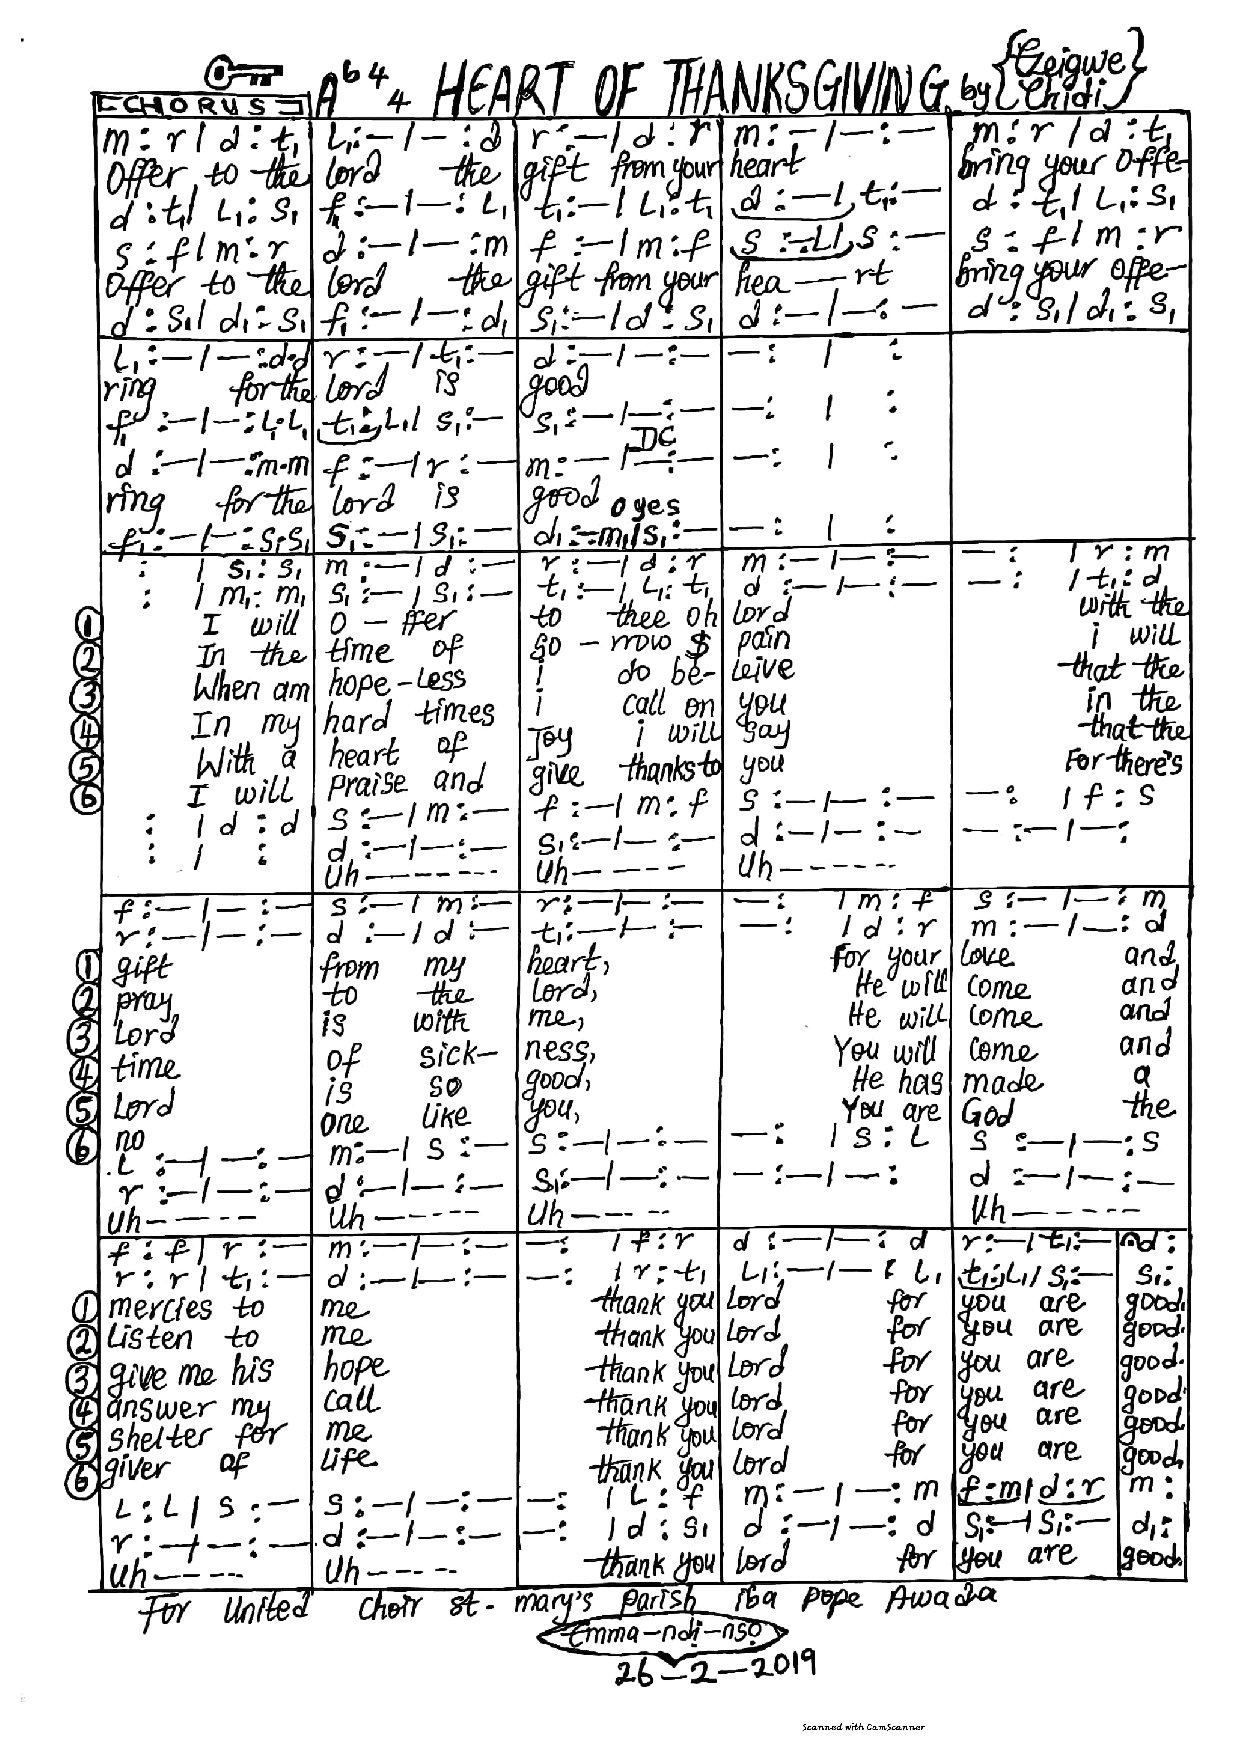 A b 4 4 HEART OF THANKSGIVING. by {Ezeigwe Chidi}
[CHORUS]
m : r / d : t₁ L₁ : — / — : d r : — / d : r m : — / — : — m : r / d : t₁
Offer to the lord the gift from your heart bring your Offe-
d : t₁ / L₁ : S₁ f₁ : — / — : L₁ t₁ : — / L₁ : t₁ d : — / t₁ : — d : t₁ / L₁ : S₁
s : f / m : r d : — / — : m f : — / m : f s : — L / s : — s : f / m : r
Offer to the lord the gift from your hea — rt bring your offe—
d : S₁ / d₁ : S₁ f₁ : — / — : d₁ S₁ : — / d : S₁ d : — / — : — d : S₁ / d₁ : S₁
L₁ : — / — : d.d r : — / t₁ : — d : — / — : — — : / :
ring for the lord is good
f₁ : — / — : L₁.L₁ t₁ : L₁ / S₁ : — S₁ : — / — : — — : / :
DC
d : — / — : m.m f : — / r : — m : — / — : — — : / :
ring for the lord is good o yes
f₁ : — / — : S₁S₁ S₁ : — / S₁ : — d₁ : — m₁ / S₁ : — — : / :
: / S₁ : S₁ m : — / d : — r : — / d : r m : — / — : — — : / r : m
: / m₁ : m₁ S₁ : — / S₁ : — t₁ : — / L₁ : t₁ d : — / — : — — : / t₁ : d
① I will O - ffer to thee oh lord with the
② In the time of So - rrow $ pain i will
③ When am hope-less i do be- leive that the
④ In my hard times i call on you in the
⑤ With a heart of Joy i will say that the
⑥ I will Praise and give thanks to you For there's
: / d : d s : — / m : — f : — / m : f s : — / — : — — : / f : s
: / : d : — / — : — S₁ : — / — : — d : — / — : — — : — / — :
Uh — - - - - - Uh — - - - - Uh — - - - - -
f : — / — : — s : — / m : — r : — / — : — — : / m : f s : — / — : m
r : — / — : — d : — / d : — t₁ : — / — : — — : / d : r m : — / — : d
① gift from my heart, For your love and
② pray to the Lord, He will come and
③ Lord is with me, He will come and
④ time of sick- ness, You will come and
⑤ Lord is so good, He has made a
⑥ no one like you, You are God the
L : — / — : — m : — / s : — s : — / — : — — : / s : L s : — / — : s
r : — / — : — d : — / — : — S₁ : — / — : — — : — / — : d : — / — : —
Uh — - - - - Uh — - - - - - Uh — - - - - Uh — - - - - -
f : f / r : — m : — / — : — — : / f : r d : — / — : d r : — / t₁ : — d :
r : r / t₁ : — d : — / — : — — : / r : t₁ L₁ : — / — : L₁ t₁ : L₁ / S₁ : — S₁ :
① mercies to me thank you lord for you are good.
② Listen to me thank you lord for you are good.
③ give me his hope thank you Lord for you are good.
④ answer my call thank you lord for you are good.
⑤ shelter for me thank you lord for you are good.
⑥ giver of life thank you lord for you are good.
L : L / s : — s : — / — : — — : / L : f m : — / — : m f : m / d : r m :
r : — / — : — d : — / — : — — : / d : S₁ d : — / — : d S₁ : — / S₁ : — d₁ :
Uh — - - - - Uh — - - - - thank you lord for you are good.
For United Choir St- mary's Parish iba Pope Awada
Emma-ndi-nso
26-2-2019
Scanned with CamScanner